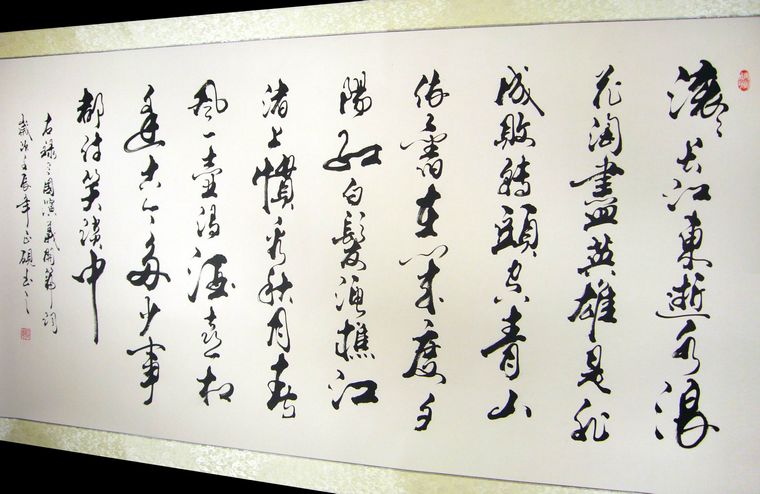 滚々长江東逝水浪
花淘盡英雄是非
成敗轉頭空青山
依舊在幾度夕
陽紅白髮漁樵江
渚上慣看秋月春
風一壶濁酒喜相
逢古今多少事
都付笑談中
右録三國演義開篇词
歲次壬辰年正硯書之